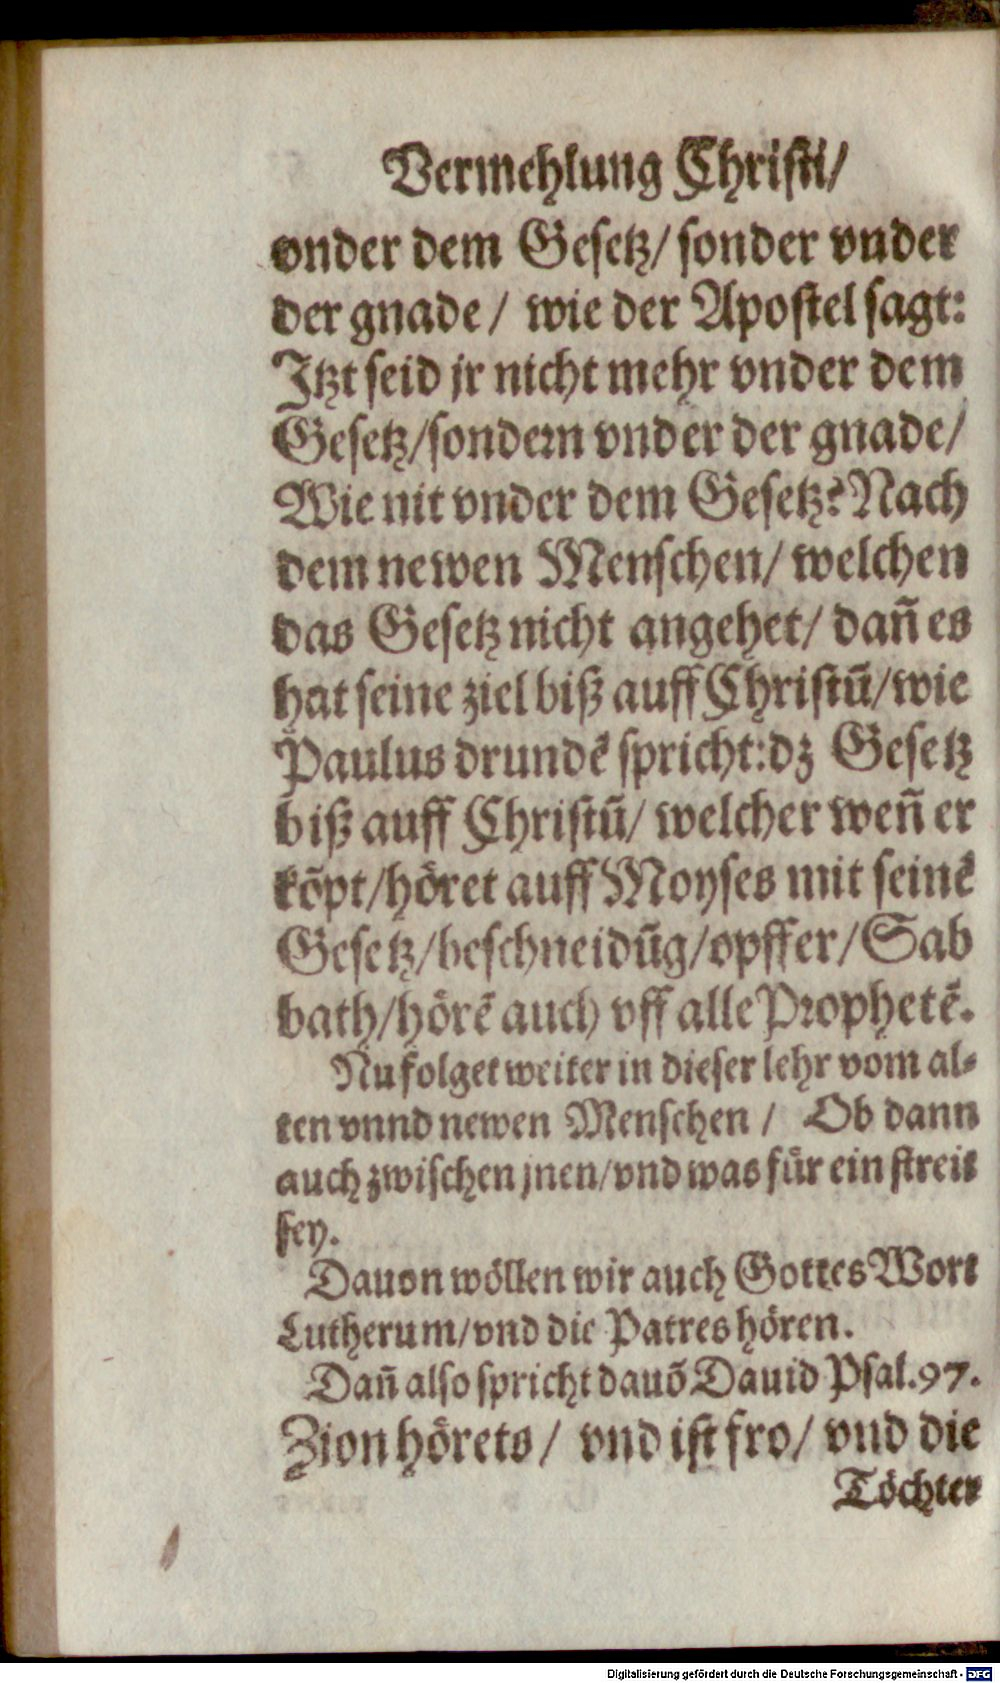 Vermehlung Christi/
vnder dem Gesetz/ sonder vnder
der gnade/ wie der Apostel sagt:
Jtzt seid jr nicht mehr vnder dem
Gesetz/sondern vnder der gnade/
Wie nit vnder dem Gesetz? Nach
dem newen Menschen/ welchen
das Gesetz nicht angehet/ dañ es
hat seine ziel biß auff Christū/wie
Paulus drundē spricht:dz Gesetz
biß auff Christū/ welcher weñ er
kōpt/höret auff Moyses mit seinē
Gesetz/beschneidūg/opffer/Sab
bath/hörē auch vff alle Prophetē.
Nu folget weiter in dieser lehr vom al-
ten vnnd newen Menschen / Ob dann
auch zwischen jnen/vnd was für ein streit
sey.
Dauon wöllen wir auch Gottes Wort
Lutherum/vnd die Patres hören.
Dañ also spricht dauō Dauid Psal.97.
Zion hörets/ vnd ist fro/ vnd die
Töchter
Digitalisierung gefördert durch die Deutsche Forschungsgemeinschaft - DFG